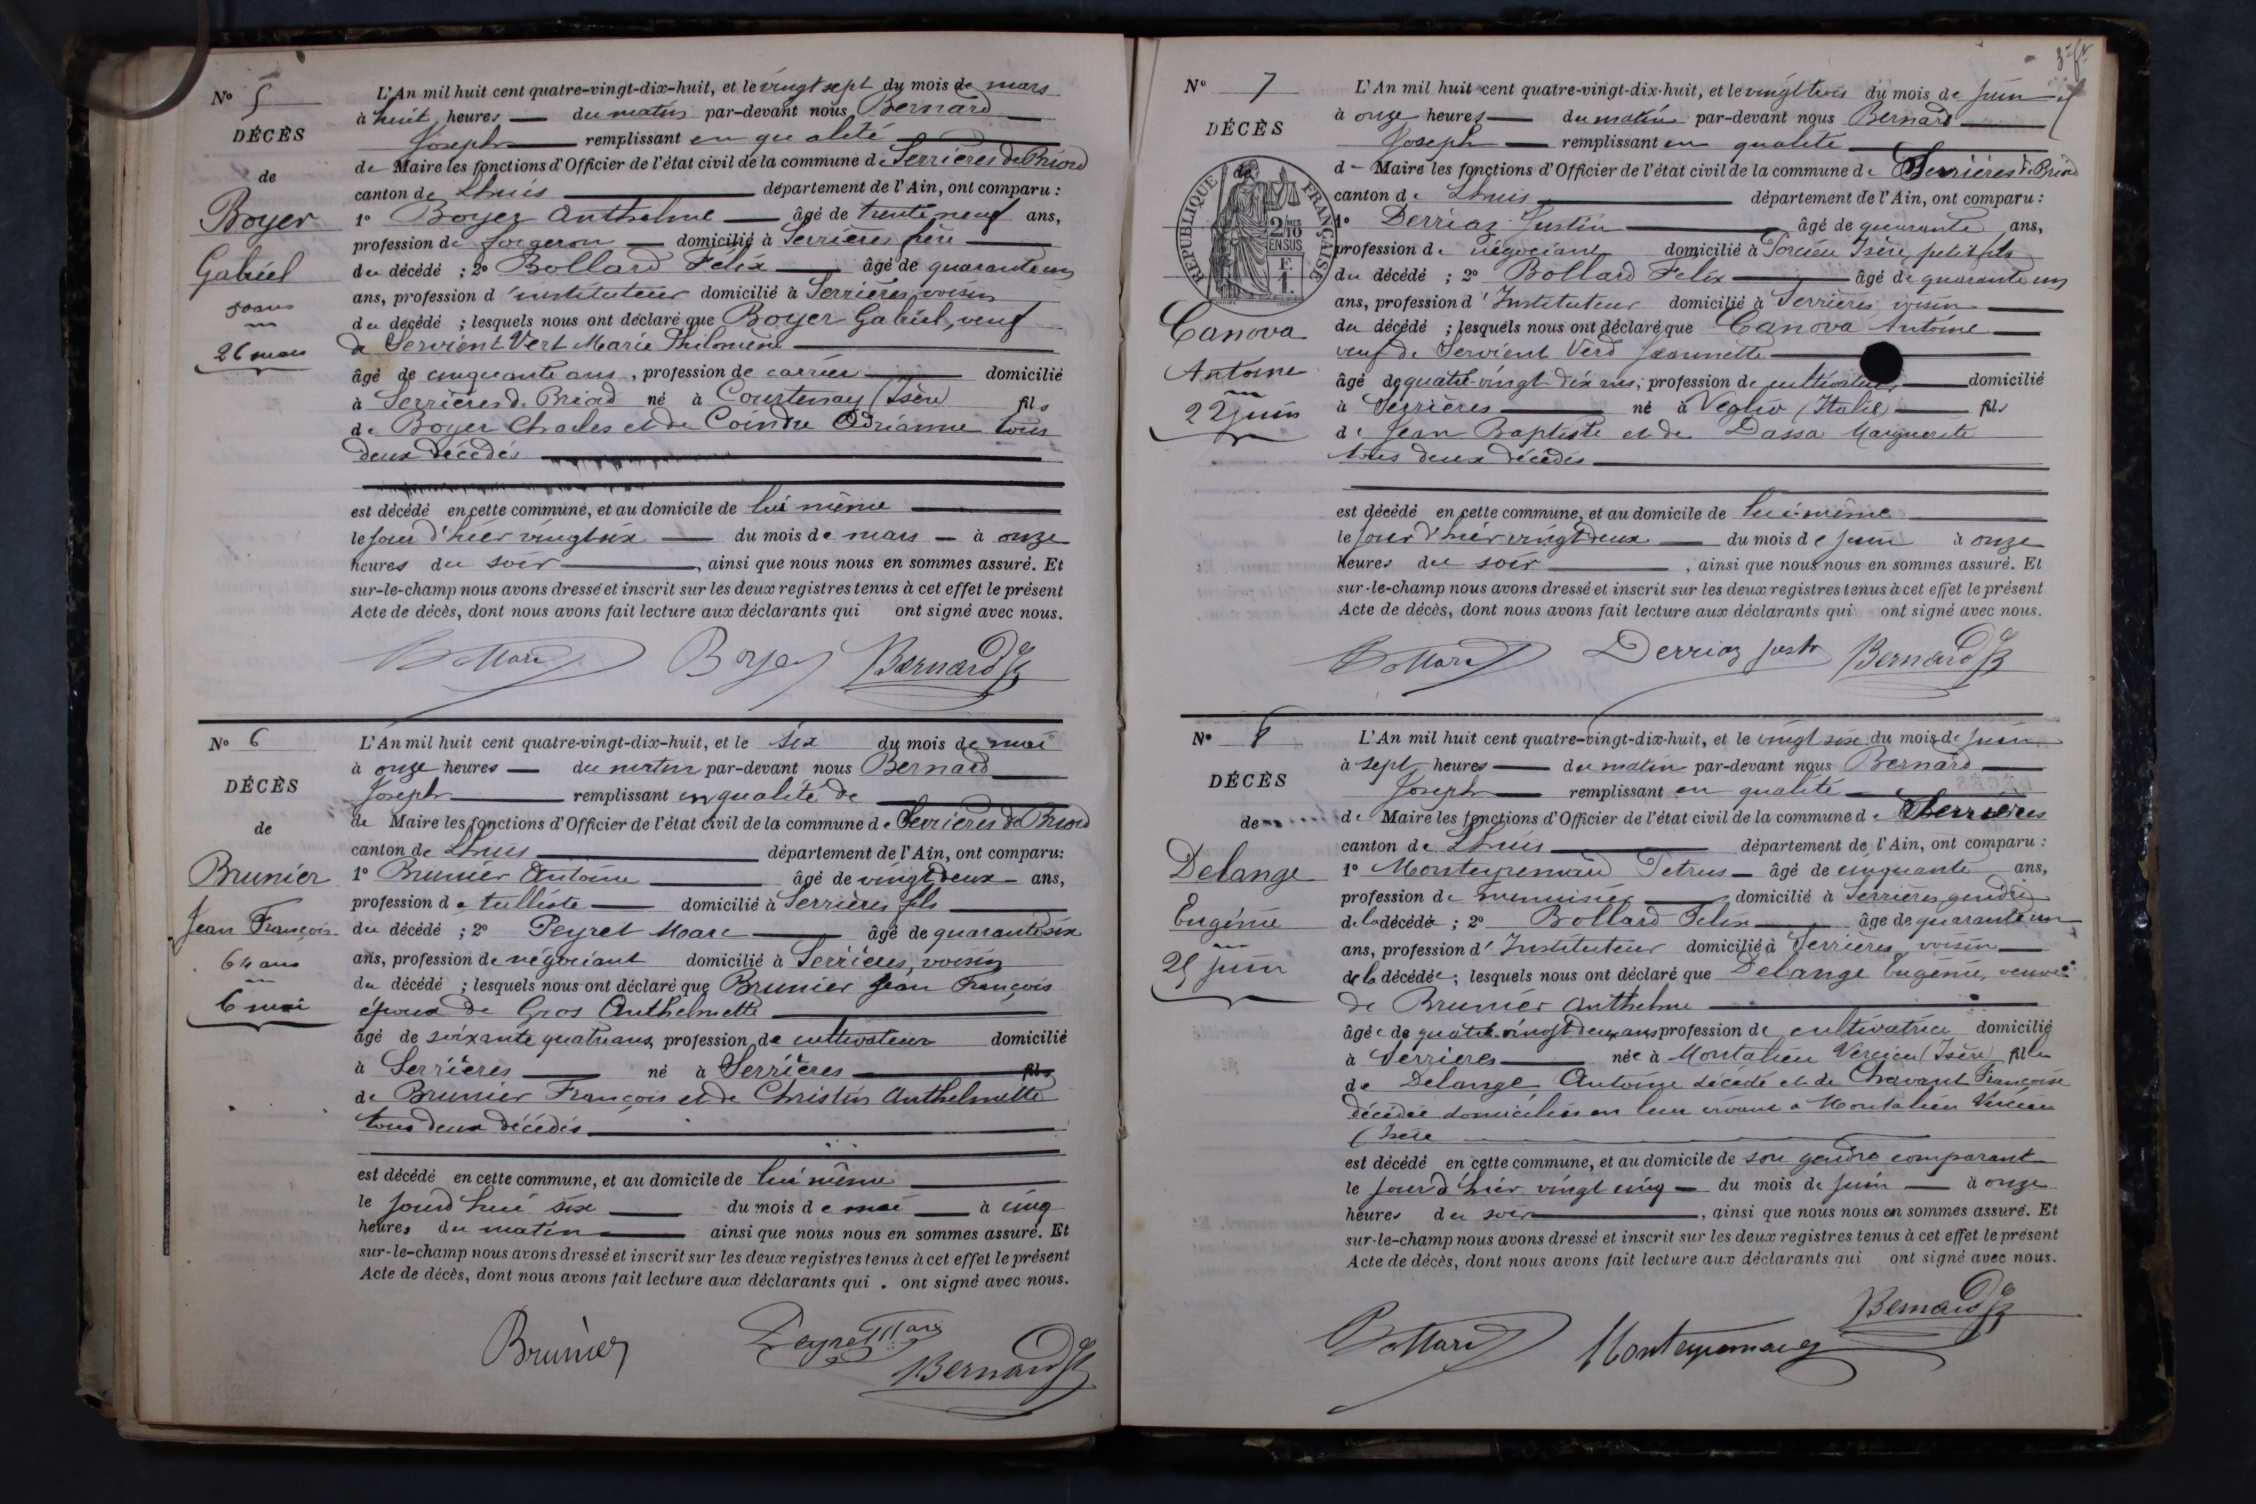 N° 5
DÉCÈS
de
Boyer
Gabriel
50 ans
26 mars
L'An mil huit cent quatre-vingt-dix-huit, et le vingt sept du mois de mars
à huit heures du matin par-devant nous Bernard
Joseph remplissant en qualité
de Maire les fonctions d'Officier de l'état civil de la commune de Serrières de Briord
canton de Lhuis département de l'Ain, ont comparu :
1° Boyer Anthelme âgé de trente neuf ans,
profession de forgeron domicilié à Serrières frère
du décédé ; 2° Bollard Felix âgé de quarante un
ans, profession d'instituteur domicilié à Serrières, voisin
du décédé ; lesquels nous ont déclaré que Boyer Gabriel, veuf
de Servient Vert Marie Philomène
âgé de cinquante ans, profession de carrier domicilié
à Serrières de Briord né à Courtenay (Isère) fils
de Boyer Charles et de Cointre Adrianne tous
deux décédés
est décédé en cette commune, et au domicile de lui même
le jour d'hier vingt six du mois de mars à onze
heures du soir, ainsi que nous nous en sommes assuré. Et
sur-le-champ nous avons dressé et inscrit sur les deux registres tenus à cet effet le présent
Acte de décès, dont nous avons fait lecture aux déclarants qui ont signé avec nous.
Bollard Boyer Bernard J
N° 6
DÉCÈS
de
Brunier
Jean François
64 ans
6 mai
L'An mil huit cent quatre-vingt-dix-huit, et le six du mois de mai
à onze heures du matin par-devant nous Bernard
Joseph remplissant en qualité de
de Maire les fonctions d'Officier de l'état civil de la commune de Serrières de Briord
canton de Lhuis département de l'Ain, ont comparu:
1° Brunier Antoine âgé de vingt deux ans,
profession de tulliste domicilié à Serrières fils
du décédé ; 2° Peyret Marc âgé de quarante six
ans, profession de négociant domicilié à Serrières, voisin
du décédé ; lesquels nous ont déclaré que Brunier Jean François
époux de Gros Anthelmette
âgé de soixante quatre ans, profession de cultivateur domicilié
à Serrières né à Serrières fils
de Brunier François et de Christin Anthelmette
tous deux décédés
est décédé en cette commune, et au domicile de lui même
le jourd'hui six du mois de mai à cinq
heures du matin ainsi que nous nous en sommes assuré. Et
sur-le-champ nous avons dressé et inscrit sur les deux registres tenus à cet effet le présent
Acte de décès, dont nous avons fait lecture aux déclarants qui ont signé avec nous.
Brunier Peyret Marc
Bernard J
N° 7
DÉCÈS
de
RÉPUBLIQUE FRANÇAISE
2/10
EN SUS
F.
1
Canova
Antoine
22 juin
L'An mil huit cent quatre-vingt-dix-huit, et le vingt trois du mois de juin
à onze heures du matin par-devant nous Bernard
Joseph remplissant en qualité
d Maire les fonctions d'Officier de l'état civil de la commune de Serrières de Briord
canton de Lhuis département de l'Ain, ont comparu :
1° Derriaz Justin âgé de quarante ans,
profession de négociant domicilié à Porcieu Isère, petit fils
du décédé ; 2° Bollard Felix âgé de quarante un
ans, profession d'Instituteur domicilié à Serrières voisin
du décédé ; lesquels nous ont déclaré que Canova Antoine
veuf de Servient Verd Jeannette
âgé de quatre-vingt-dix ans, profession de cultivateur domicilié
à Serrières né à Veglio (Italie) fils
de Jean Baptiste et de Dassa Marguerite
tous deux décédés
est décédé en cette commune, et au domicile de lui-même
le jour d'hier vingt deux du mois de juin à onze
heures du soir, ainsi que nous nous en sommes assuré. Et
sur-le-champ nous avons dressé et inscrit sur les deux registres tenus à cet effet le présent
Acte de décès, dont nous avons fait lecture aux déclarants qui ont signé avec nous.
Bollard Derriaz Justin Bernard J
N° 8
DÉCÈS
de
Delange
Eugénie
25 juin
L'An mil huit cent quatre-vingt-dix-huit, et le vingt six du mois de juin
à sept heures du matin par-devant nous Bernard
Joseph remplissant en qualité
de Maire les fonctions d'Officier de l'état civil de la commune de Serrières
canton de Lhuis département de l'Ain, ont comparu :
1° Monteyremard Petrus âgé de cinquante ans,
profession de menuisier domicilié à Serrières, gendre
de la décédé ; 2° Bollard Felix âgé de quarante un
ans, profession d'Instituteur domicilié à Serrières, voisin
de la décédée ; lesquels nous ont déclaré que Delange Eugénie, veuve
de Brunier Anthelme
âgée de quatre-vingt deux ans profession de cultivatrice domicilié
à Serrières née à Montalieu Vercieu (Isère) fille
de Delange Antoine décédé et de Chavant Françoise
décédée domiciliés en leur vivant à Montalieu Vercieu
(Isère
est décédé en cette commune, et au domicile de son gendre comparant
le jour d'hier vingt cinq du mois de juin à onze
heures du soir, ainsi que nous nous en sommes assuré. Et
sur-le-champ nous avons dressé et inscrit sur les deux registres tenus à cet effet le présent
Acte de décès, dont nous avons fait lecture aux déclarants qui ont signé avec nous.
Bollard Monteyremard Bernard J